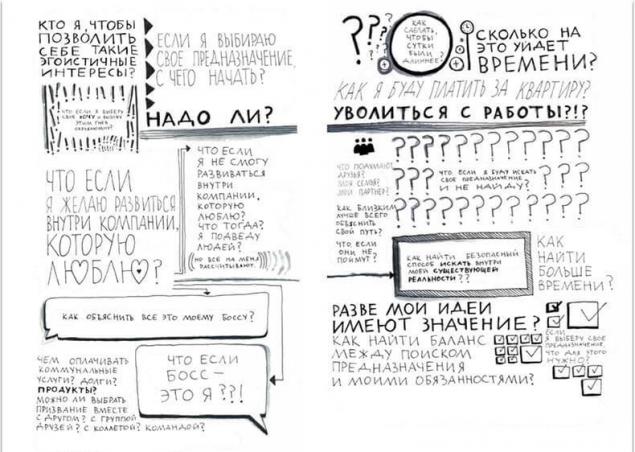 КТО Я, ЧТОБЫ
ПОЗВОЛИТЬ
СЕБЕ ТАКИЕ
ЭГОИСТИЧНЫЕ
ИНТЕРЕСЫ?
ЕСЛИ Я ВЫБИРАЮ
СВОЕ ПРЕДНАЗНАЧЕНИЕ,
С ЧЕГО НАЧАТЬ?
ЧТО ЕСЛИ Я ВЫБЕРУ
СВОЕ ХОЧУ И ВЫЗОВУ
ЭТИМ ГНЕВ
НАДО ЛИ?
ЧТО ЕСЛИ
Я ЖЕЛАЮ РАЗВИТЬСЯ
ВНУТРИ КОМПАНИИ,
КОТОРУЮ
ЛЮБЛЮ?
ЧТО ЕСЛИ
Я НЕ СМОГУ
РАЗВИВАТЬСЯ
ВНУТРИ
КОМПАНИИ,
КОТОРУЮ
ЛЮБЛЮ?
ЧТО ТОГДА?
Я ПОДВЕДУ
ЛЮДЕЙ?
(НО ВСЕ НА МЕНЯ
РАССЧИТЫВАЮТ)
КАК ОБЪЯСНИТЬ ВСЕ ЭТО МОЕМУ БОССУ?
ЧЕМ ОПЛАЧИВАТЬ
КОММУНАЛЬНЫЕ
УСЛУГИ? ДОЛГИ?
ПРОДУКТЫ?
МОЖНО ЛИ ВЫБРАТЬ
ПРИЗВАНИЕ ВМЕСТЕ
С ДРУГОМ? С ГРУППОЙ
ДРУЗЕЙ? С КОЛЛЕГОЙ? КОМАНДОЙ?
ЧТО ЕСЛИ
БОСС —
ЭТО Я??!
???
???
КАК
СДЕЛАТЬ,
ЧТОБЫ
СУТКИ
БЫЛИ
ДЛИННЕЕ?
СКОЛЬКО НА
ЭТО УЙДЕТ
ВРЕМЕНИ?
КАК Я БУДУ ПЛАТИТЬ ЗА КВАРТИРУ?
УВОЛИТЬСЯ С РАБОТЫ?!?
ЧТО ПОДУМАЮТ
ДРУЗЬЯ?
МОЯ СЕМЬЯ?
МОЙ ПАРТНЕР?
ЧТО ЕСЛИ Я БУДУ ИСКАТЬ
СВОЕ ПРЕДНАЗНАЧЕНИЕ
И НЕ НАЙДУ?
КАК БЛИЗКИМ
ЛУЧШЕ ВСЕГО
ОБЪЯСНИТЬ
СВОЙ ПУТЬ?
ЧТО ЕСЛИ
ОНИ НЕ
ПОЙМУТ?
КАК НАЙТИ БЕЗОПАСНЫЙ
СПОСОБ ИСКАТЬ ВНУТРИ
МОЕЙ СУЩЕСТВУЮЩЕЙ
РЕАЛЬНОСТИ??
КАК
НАЙТИ
БОЛЬШЕ
ВРЕМЕНИ?
РАЗВЕ МОИ ИДЕИ
ИМЕЮТ ЗНАЧЕНИЕ?
КАК НАЙТИ БАЛАНС
МЕЖДУ ПОИСКОМ
ПРЕДНАЗНАЧЕНИЯ
И МОИМИ ОБЯЗАННОСТЯМИ?
ЕСЛИ
Я ВЫБЕРУ СВОЕ
ПРЕДНАЗНАЧЕНИЕ,
ЧТО ДЛЯ ЭТОГО
НУЖНО?